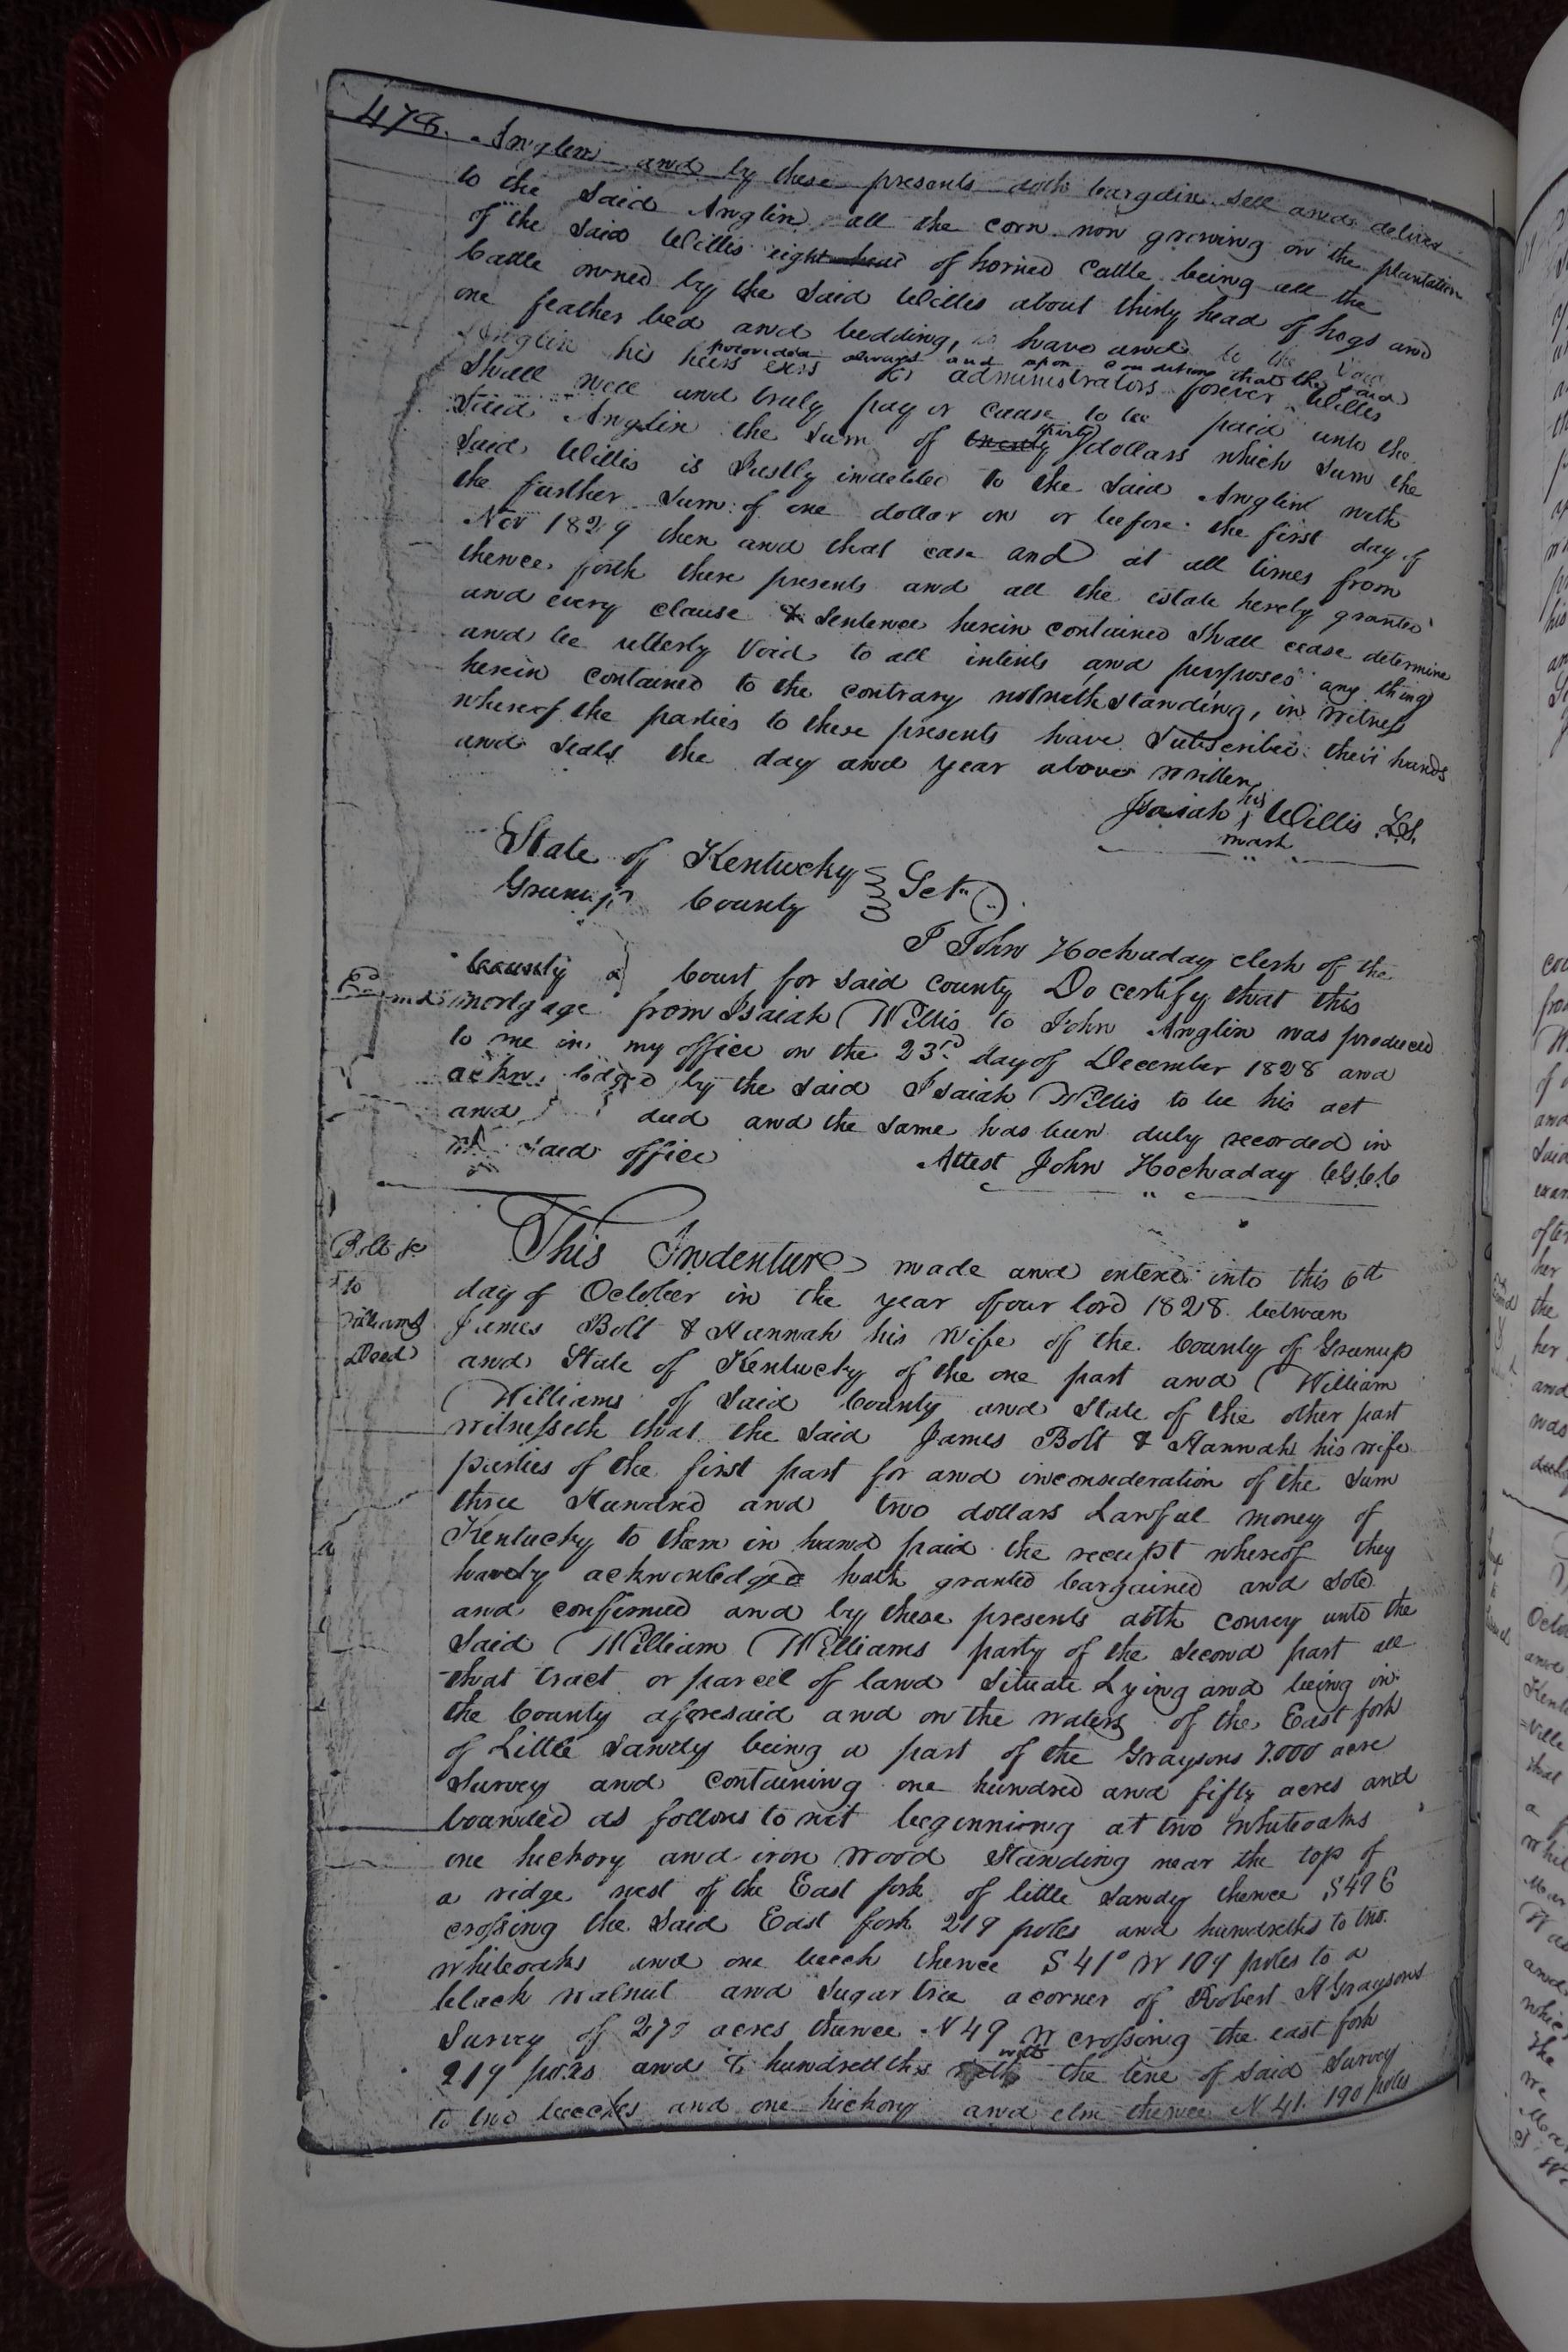 478.
Anglin and by these presents doth bargain sell and deliver
to the said Anglin all the corn now growing on the plantation
of the said Willis eight head of horned cattle being all the
Cattle owned by the said Willis about thirty head of hogs and
one feather bed and bedding, to have and to the said
Anglin his heirs exrs & administrators forever
provided always and upon condition that the said Willis
Shall well and truly pay or cause to be paid unto the
said Anglin the sum of twenty thirty dollars which sum the
said Willis is Justly indebted to the said Anglin with
the further sum of one dollar on or before the first day of
Nov 1829 then and that case and at all times from
thence forth these presents and all the estate hereby granted
and every clause & sentence herein contained shall cease determine
and be utterly void to all intents and purposes any thing
herein contained to the contrary notwithstanding, in witness
whereof the parties to these presents have subscribed their hands
and seals the day and year above written
Isaiah his Willis LS.
mark
State of Kentucky
Greenup County Sct.
I John Hockaday clerk of the
County Court for said county Do certify that this
mortgage from Isaiah Willis to John Anglin was produced
to me in my office on the 23rd day of December 1828 and
acknowledged by the said Isaiah Willis to be his act
and deed and the same has been duly recorded in
said office
Attest John Hockaday C G C C
Bolt &c
to
Williams
Deed
This Indenture made and entered into this 6th
day of October in the year of our lord 1828 between
James Bolt & Hannah his Wife of the County of Greenup
and State of Kentucky of the one part and William
Williams of said County and State of the other part
witnesseth that the said James Bolt & Hannah his wife
parties of the first part for and inconsideration of the sum
three Hundred and two dollars Lawful money of
Kentucky to them in hand paid the receipt whereof they
hereby acknowledged hath granted bargained and sold
and confirmed and by these presents doth convey unto the
said William Williams party of the second part all
that tract or parcel of land Situate Lying and being in
the County aforesaid and on the waters of the East fork
of Little Sandy being a part of the Graysons 7.000 acre
Survey and containing one hundred and fifty acres and
bounded as follows to wit beginniong at two whiteoaks
one hickory and iron wood Standing near the top of
a ridge west of the East fork of little Sandy thence S 49 E
crossing the said East fork 219 poles and hundredths to two
whiteoaks and one beech thence S 41° W 109 poles to a
black walnut and Sugar tree a corner of Robert H Graysons
Survey of 270 acres thence N 49 W crossing the east fork
219 poles and hundredths with the line of said Survey
to two beeches and one hickory and elm thence N 41. 190 poles